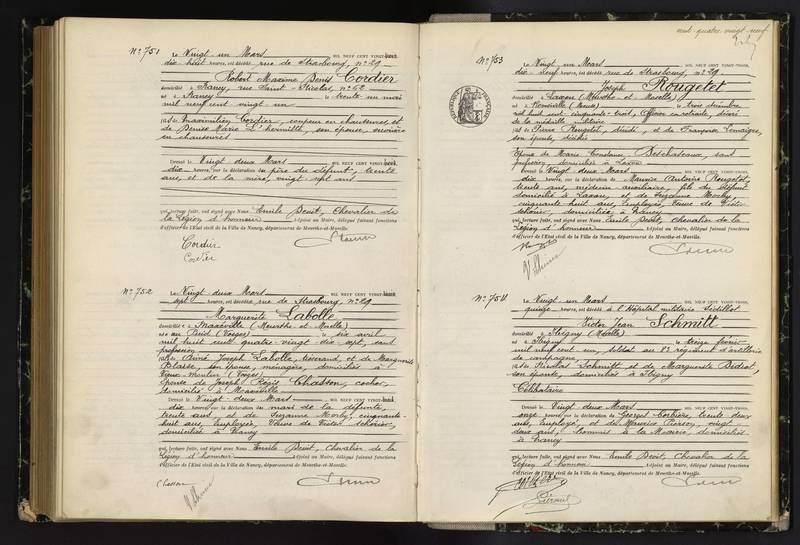 N° 751 Le Vingt-un Mars MIL NEUF CENT VINGT-
dix huit heures, est décédé rue de Strasbourg, n° 29
Robert Maxime Denis Cordier
domicilié à Nancy, rue Saint-Nicolas, n° 62
né à Nancy le trente-un mai
mil neuf cent vingt-un
fils de Maximilien Cordier, coupeur en chaussures, et
de Denise Marie L'hermitte, son épouse, ouvrière
en chaussures
Dressé le Vingt deux Mars MIL NEUF CENT VINGT-
dix heures, sur la déclaration du père du défunt, trente
ans, et de la mère, vingt sept ans
qui, lecture faite, ont signé avec Nous Emile Benit, Chevalier de
la Légion d'honneur Adjoint au Maire, délégué faisant fonctions
d'officier de l'Etat civil de la Ville de Nancy, département de Meurthe-et-Moselle.
Cordier
Cordier
N° 752 Le Vingt deux Mars MIL NEUF CENT VINGT-
sept heures, est décédée rue de Strasbourg, n° 29
Marguerite Labolle
domiciliée à Maxéville (Meurthe et Moselle)
née au (Vosges) le six avril
mil huit cent quatre-vingt-dix sept, sans
profession
fille de Joseph Labolle, tisserand, et de Marguerite
Blaise, son épouse, ménagère, domiciliés à
(Vosges)
Epouse de Joseph Régis Chasson, cocher,
domicilié à Maxéville
Dressé le Vingt-deux Mars MIL NEUF CENT VINGT-
dix heures, sur la déclaration du mari de la défunte,
trente ans, et de Suzanne Morhy, cinquante-
huit ans, employée, Veuve de Victor
domiciliée à Nancy
qui, lecture faite, ont signé avec Nous Emile Benit, Chevalier de la
Légion d'honneur Adjoint au Maire, délégué faisant fonctions
d'officier de l'Etat civil de la Ville de Nancy, département de Meurthe-et-Moselle.
Chasson
cent quatre vingt neuf
N° 753 Le Vingt un Mars MIL NEUF CENT VINGT-TROIS,
dix-neuf heures, est décédé rue de Strasbourg, n° 29
Joseph Rougetet
domicilié à Laxou (Meurthe et Moselle)
né à (Meuse) le décembre
mil huit cent cinquante-huit, Officier en retraite, décoré
de la médaille militaire
fils de Pierre Rougetet, décédé, et de Françoise
son épouse, décédée
Epoux de Marie Constance, sans
profession, domiciliée à Laxou
Dressé le Vingt deux Mars MIL NEUF CENT VINGT-TROIS,
dix heures, sur la déclaration de Maurice Antoine Rougetet,
trente ans, médecin auxiliaire, fils du défunt
domicilié à Laxou, et de Suzanne Morhy,
cinquante huit ans, employée, Veuve de Victor
domiciliée à Nancy
qui, lecture faite, ont signé avec Nous Emile Benit, Chevalier de la
Légion d'honneur Adjoint au Maire, délégué faisant fonctions
d'officier de l'Etat civil de la Ville de Nancy, département de Meurthe-et-Moselle.
N° 754 Le Vingt un Mars MIL NEUF CENT VINGT-TROIS,
quinze heures, est décédé à l'Hôpital militaire Sédillot
Victor Jean Schmitt
domicilié à (Moselle)
né à le seize février
mil neuf cent un, Soldat au 8e régiment d'artillerie
de campagne
fils de Nicolas Schmitt et de Marguerite
son épouse, domiciliés à
Célibataire
Dressé le Vingt deux Mars MIL NEUF CENT VINGT-TROIS,
onze heures, sur la déclaration de Georges trente deux
ans, employé, et de Maurice Pierson, vingt
deux ans, commis à la Mairie, domiciliés
à Nancy
qui, lecture faite, ont signé avec Nous Emile Benit, Chevalier de la
Légion d'honneur Adjoint au Maire, délégué faisant fonctions
d'officier de l'Etat civil de la Ville de Nancy, département de Meurthe-et-Moselle.